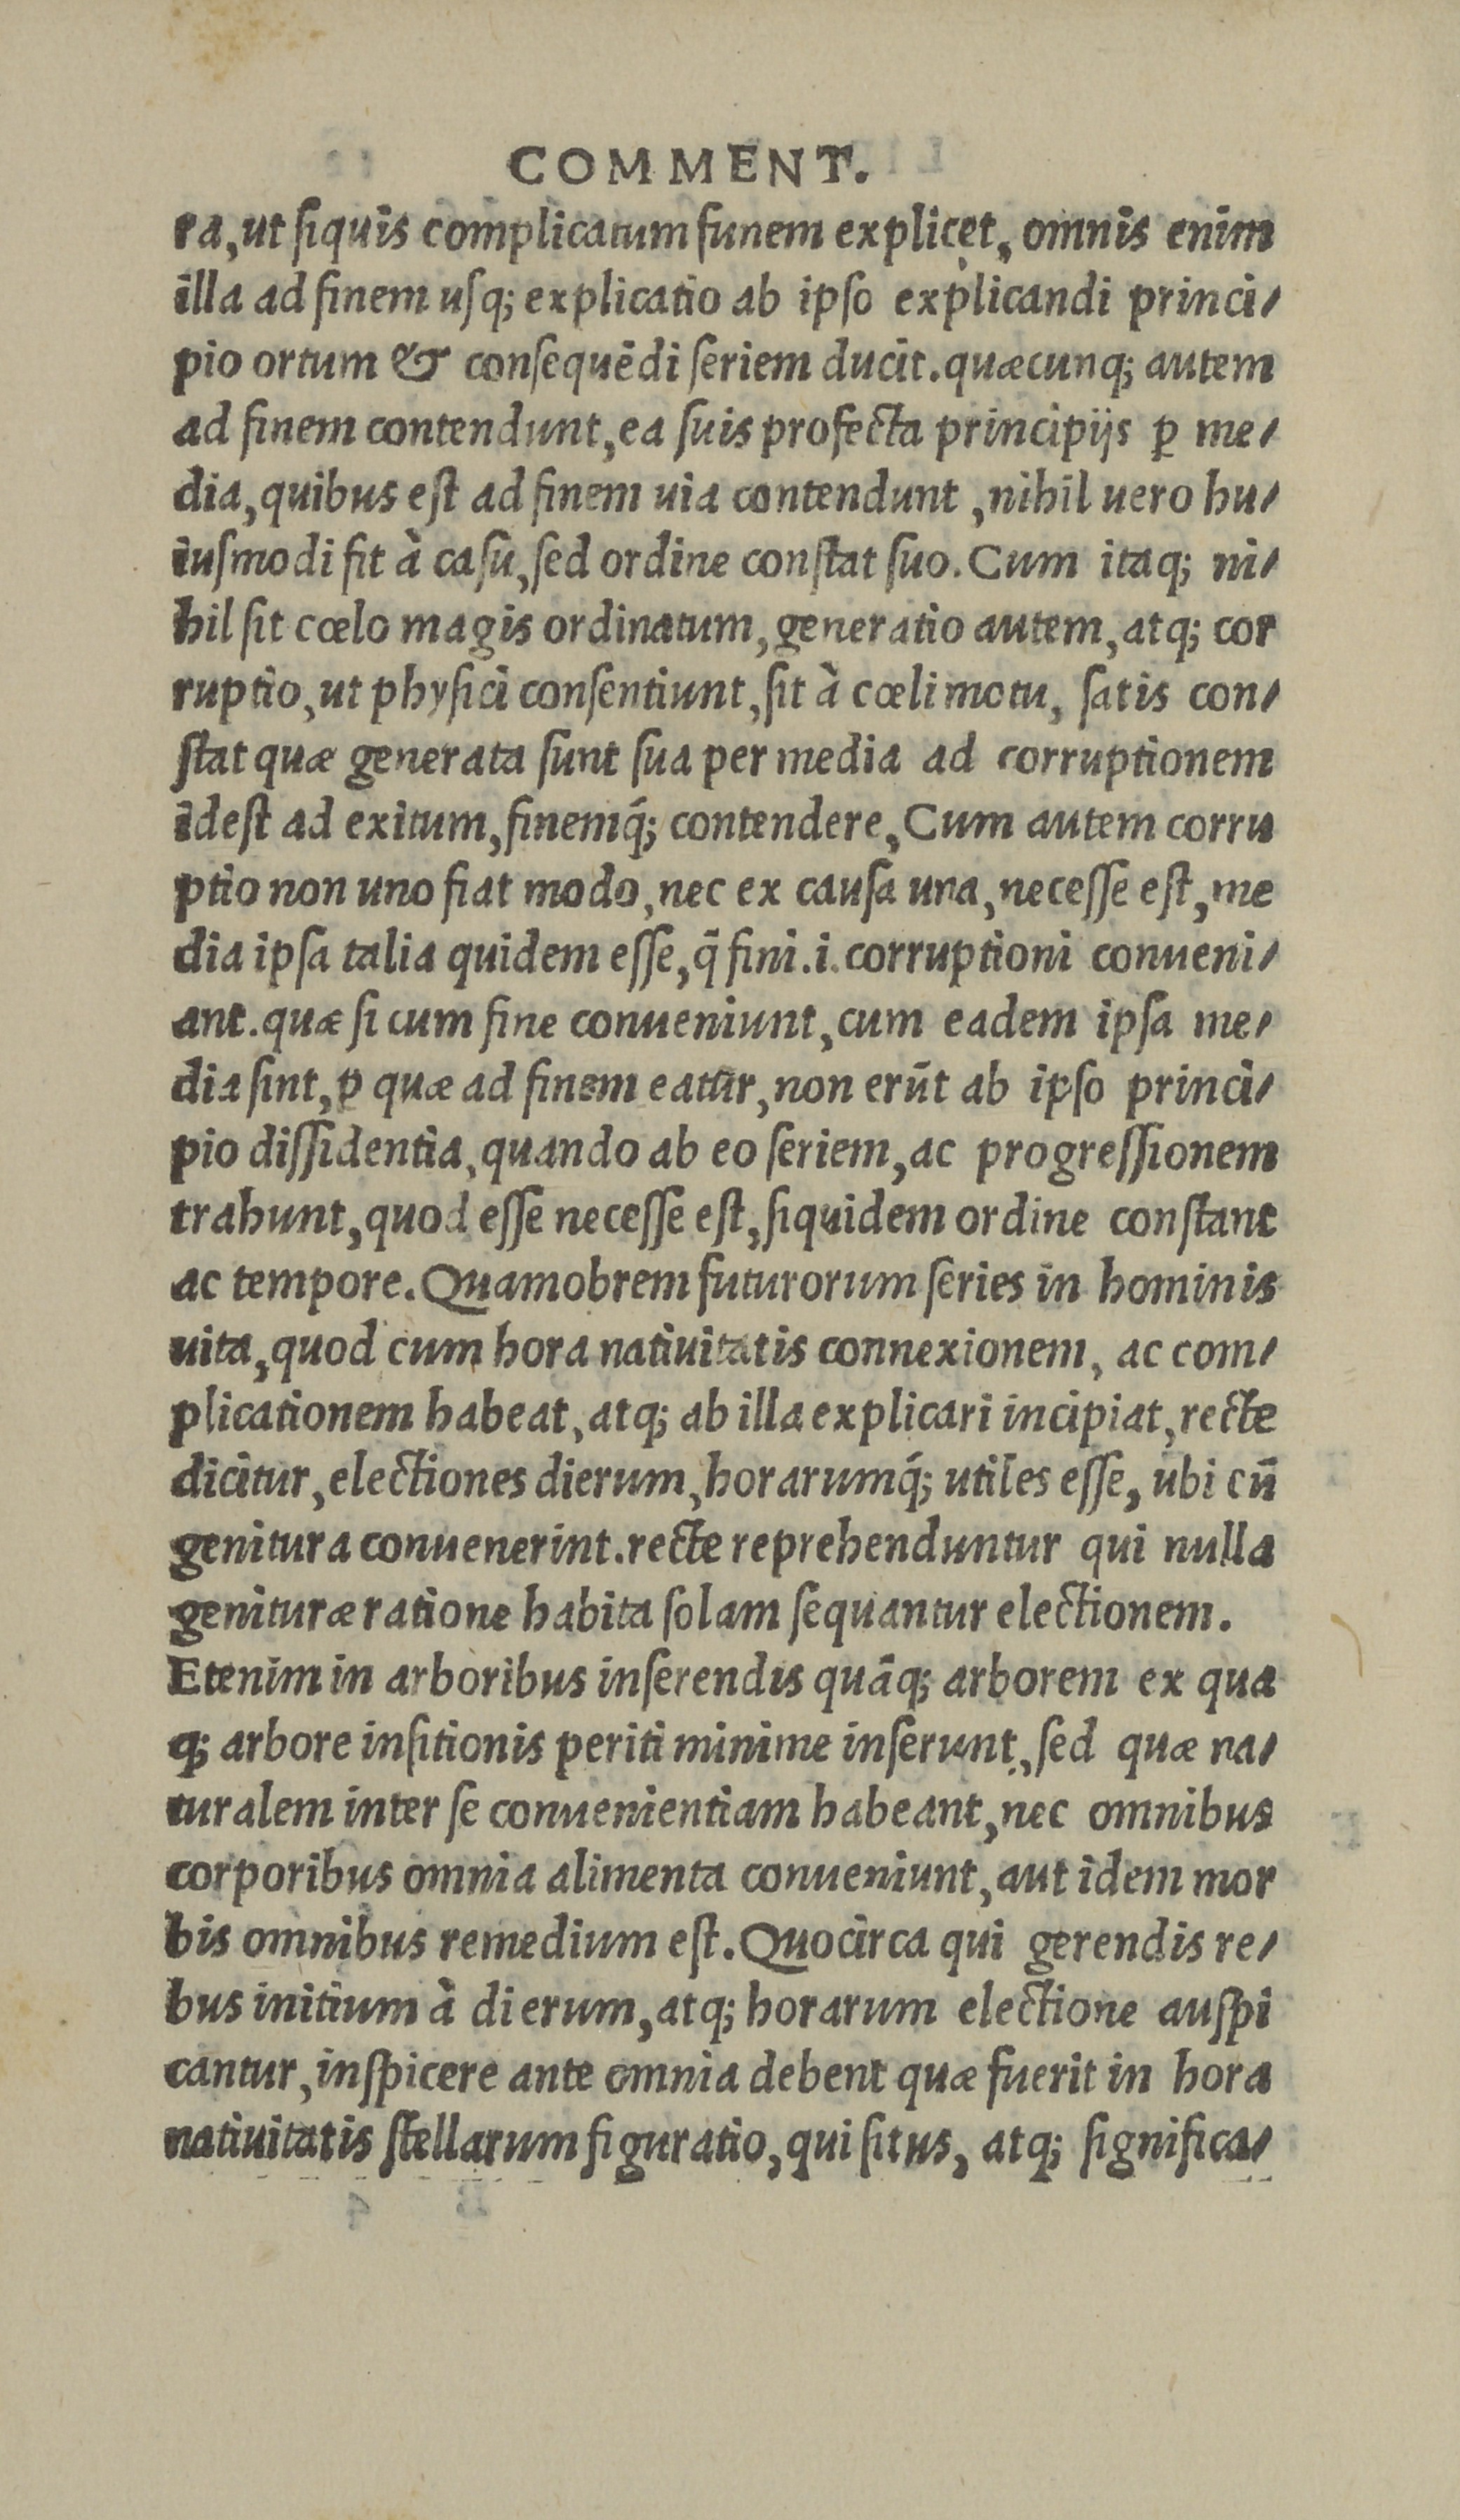 COMMENT.
ra, ut ſiquis complicatum funem explicet, omnis enim
illa ad finem uſq; explicatio ab ipſo explicandi princi/
pio ortum & conſequēdi ſeriem ducit. quæcunq; autem
ad finem contendunt, ea ſuis profecta principijs ꝑ me/
dia, quibus eſt ad finem uia contendunt, nihil uero hu/
iuſmodi fit à caſu, ſed ordine conſtat ſuo. Cum itaq; ni/
hil ſit cœlo magis ordinatum, generatio autem, atq; cor
ruptio, ut phyſici conſentiunt, ſit à cœli motu, ſatis con/
ſtat quæ generata ſunt ſua per media ad corruptionem
ideſt ad exitum, finemq́; contendere, Cum autem corru
ptio non uno fiat modo, nec ex cauſa una, neceſſe eſt, me
dia ipſa talia quidem eſſe, q̄ fini .i. corruptioni conueni/
ant. quæ ſi cum fine conueniunt, cum eadem ipſa me/
dia ſint, ꝑ quæ ad finem eatur, non erūt ab ipſo princi/
pio diſſidentia, quando ab eo ſeriem, ac progreſſionem
trahunt, quod eſſe neceſſe eſt, ſiquidem ordine conſtant
ac tempore. Quamobrem futurorum ſeries in hominis
uita, quod cum hora natiuitatis connexionem, ac com/
plicationem habeat, atq; ab illa explicari incipiat, recte
dicitur, electiones dierum, horarumq́; utiles eſſe, ubi cū
genitura conuenerint. recte reprehenduntur qui nulla
genituræ ratione habita ſolam ſequantur electionem.
Etenim in arboribus inſerendis quāq; arborem ex qua
q; arbore inſitionis periti minime inſerunt, ſed quæ na/
turalem inter ſe conuenientiam habeant, nec omnibus
corporibus omnia alimenta conueniunt, aut idem mor
bis omnibus remedium eſt. Quocirca qui gerendis re/
bus initium à dierum, atq; horarum electione auſpi
cantur, inſpicere ante omnia debent quæ fuerit in hora
natiuitatis ſtellarum figuratio, qui ſitus, atq; ſignifica/